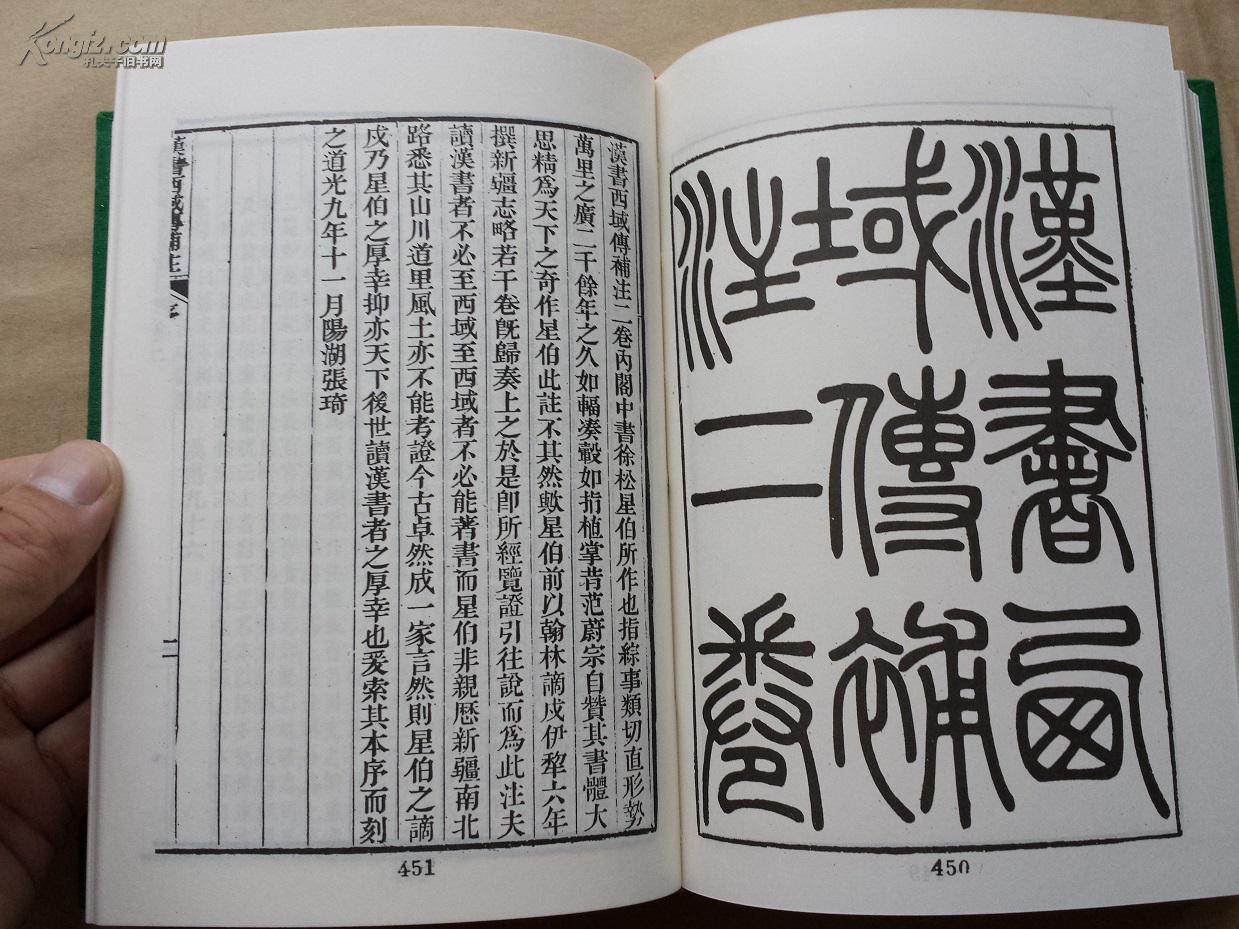 Kongfz.com
孔夫子旧书网
漢書西
域傳補
注二卷
450
漢書西域傳補注二卷內閣中書徐松星伯所作也指綜事類切直形勢
萬里之廣二千餘年之久如輻凑轂如指植掌昔范蔚宗自贊其書體大
思精爲天下之奇作星伯此註不其然歟星伯前以翰林謫戍伊犂六年
撰新疆志略若干卷旣歸奏上之於是卽所經覽證引往說而爲此注夫
讀漢書者不必至西域至西域者不必能著書而星伯非親歷新疆南北
路悉其山川道里風土亦不能考證今古卓然成一家言然則星伯之謫
戍乃星伯之厚幸抑亦天下後世讀漢書者之厚幸也爰索其本序而刻
之道光九年十一月陽湖張琦
漢書西域傳補注
序
二
451